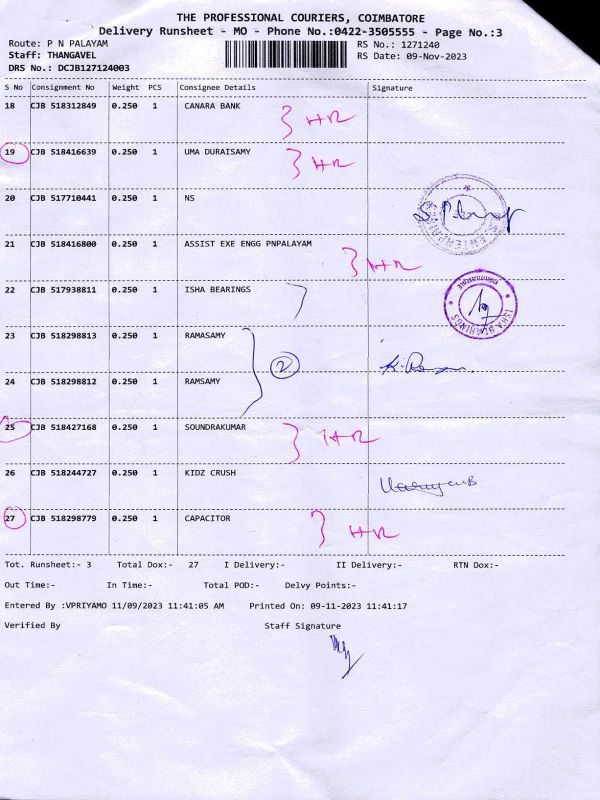 THE PROFESSIONAL COURIERS, COIMBATORE
Delivery Runsheet - MO - Phone No.:0422-3505555 - Page No.:3
Route: P N PALAYAM RS No.: 1271240
Staff: THANGAVEL RS Date: 09-Nov-2023
DRS No.: DCJB127124003
S No Consignment No Weight PCS Consignee Details Signature
18 CJB 518312849 0.250 1 CANARA BANK HR
19 CJB 518416639 0.250 1 UMA DURAISAMY HR
20 CJB 517710441 0.250 1 NS
21 CJB 518416800 0.250 1 ASSIST EXE ENGG PNPALAYAM HR
22 CJB 517938811 0.250 1 ISHA BEARINGS ISHA BEARINGS COIMBATORE
23 CJB 518298813 0.250 1 RAMASAMY
2
24 CJB 518298812 0.250 1 RAMSAMY
25 CJB 518427168 0.250 1 SOUNDRAKUMAR HR
26 CJB 518244727 0.250 1 KIDZ CRUSH
27 CJB 518298779 0.250 1 CAPACITOR HR
Tot. Runsheet:- 3 Total Dox:- 27 I Delivery:- II Delivery:- RTN Dox:-
Out Time:- In Time:- Total POD:- Delvy Points:-
Entered By :VPRIYAMO 11/09/2023 11:41:05 AM Printed On: 09-11-2023 11:41:17
Verified By Staff Signature